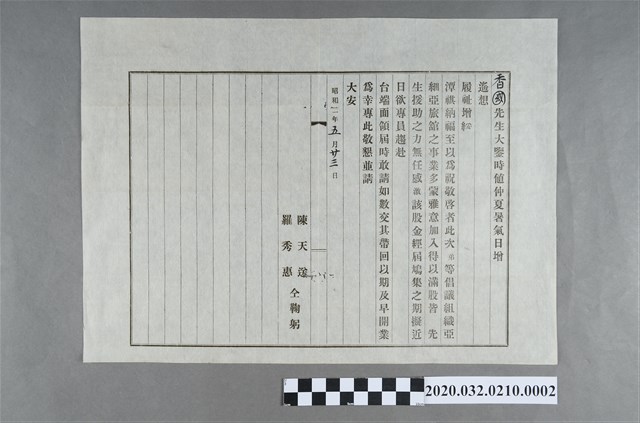 香國先生大鑒時値仲夏暑氣日增
遙想
履祉增綏
潭祺納福至以爲祝敬啓者此次弟等倡議組織亞
細亞旅館之事業多蒙雅意加入得以滿股皆 先
生援助之力無任感激該股金經屆鳩集之期擬近
日欲專員趨赴
台端面領屆時敢請如數交其帶回以期及早開業
爲幸專此敬懇並請
大安
昭和二年五月廿三日
陳天
羅秀惠 仝鞠躬
2020.032.0210.0002